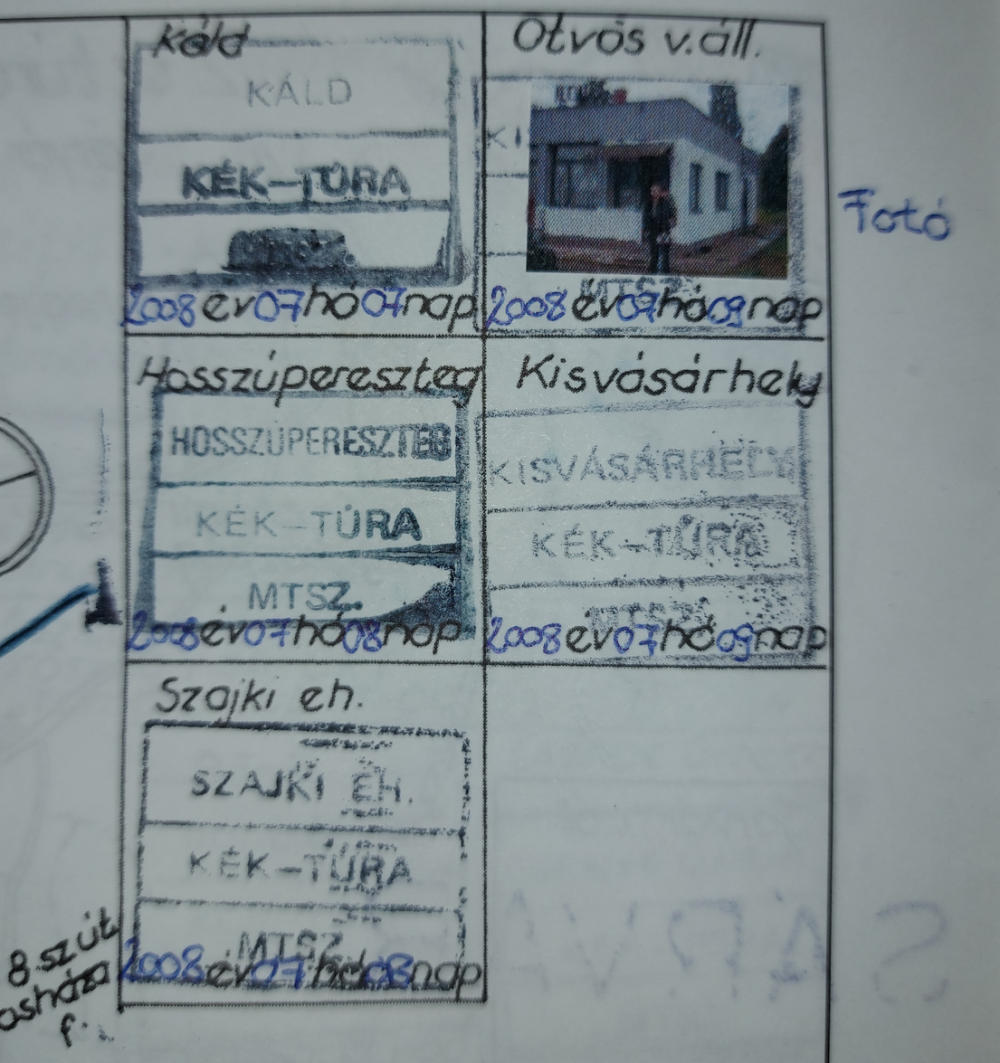 Káld
KÁLD
KÉK-TÚRA
2008 év 07 hó 07 nap
Ötvös v.áll.
KI
MTSZ.
2008 év 07 hó 09 nap
Fotó
Hosszúpereszteg
HOSSZÚPERESZTEG
KÉK-TÚRA
MTSZ.
2008 év 07 hó 08 nap
Kisvásárhely
KISVÁSÁRHELY
KÉK-TÚRA
MTSZ.
2008 év 07 hó 09 nap
Szajki eh.
SZAJKI EH.
KÉK-TÚRA
MTSZ.
2008 év 07 hó 08 nap
8.sz út
asháza
f.